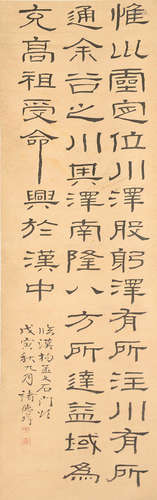 惟巛靈定位川澤股躬澤有所注川有所
通余谷之川其澤南隆八方所達益域為
充高祖受命興於漢中
臨漢楊孟文石門頌
戊寅秋九月褚德彝